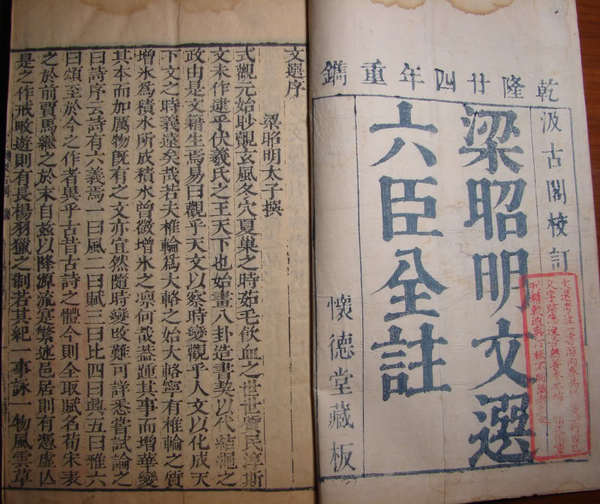 乾隆廿四年重鐫
汲古閣校訂
梁昭明文選
六臣全註
懷德堂藏板
文選序
梁昭明太子撰
式觀元始眇覿玄風冬穴夏巢之時茹毛飲血之世世質民淳斯
文未作逮乎伏羲氏之王天下也始畫八卦造書契以代結繩之
政由是文籍生焉易曰觀乎天文以察時變觀乎人文以化成天
下文之時義遠矣哉若夫椎輪爲大輅之始大輅寧有椎輪之質
增氷爲積水所成積水曾微增氷之凛何哉蓋踵其事而增華變
其本而加厲物既有之文亦宜然隨時變改難可詳悉嘗試論之
曰詩序云詩有六義焉一曰風二曰賦三曰比四曰興五曰雅六
曰頌至於今之作者異乎古昔古詩之體今則全取賦名荀宋表
之於前賈馬繼之於末自茲以降源流寔繁述邑居則有憑虛亡
是之作戒畋遊則有長楊羽獵之制若其紀一事詠一物風雲草